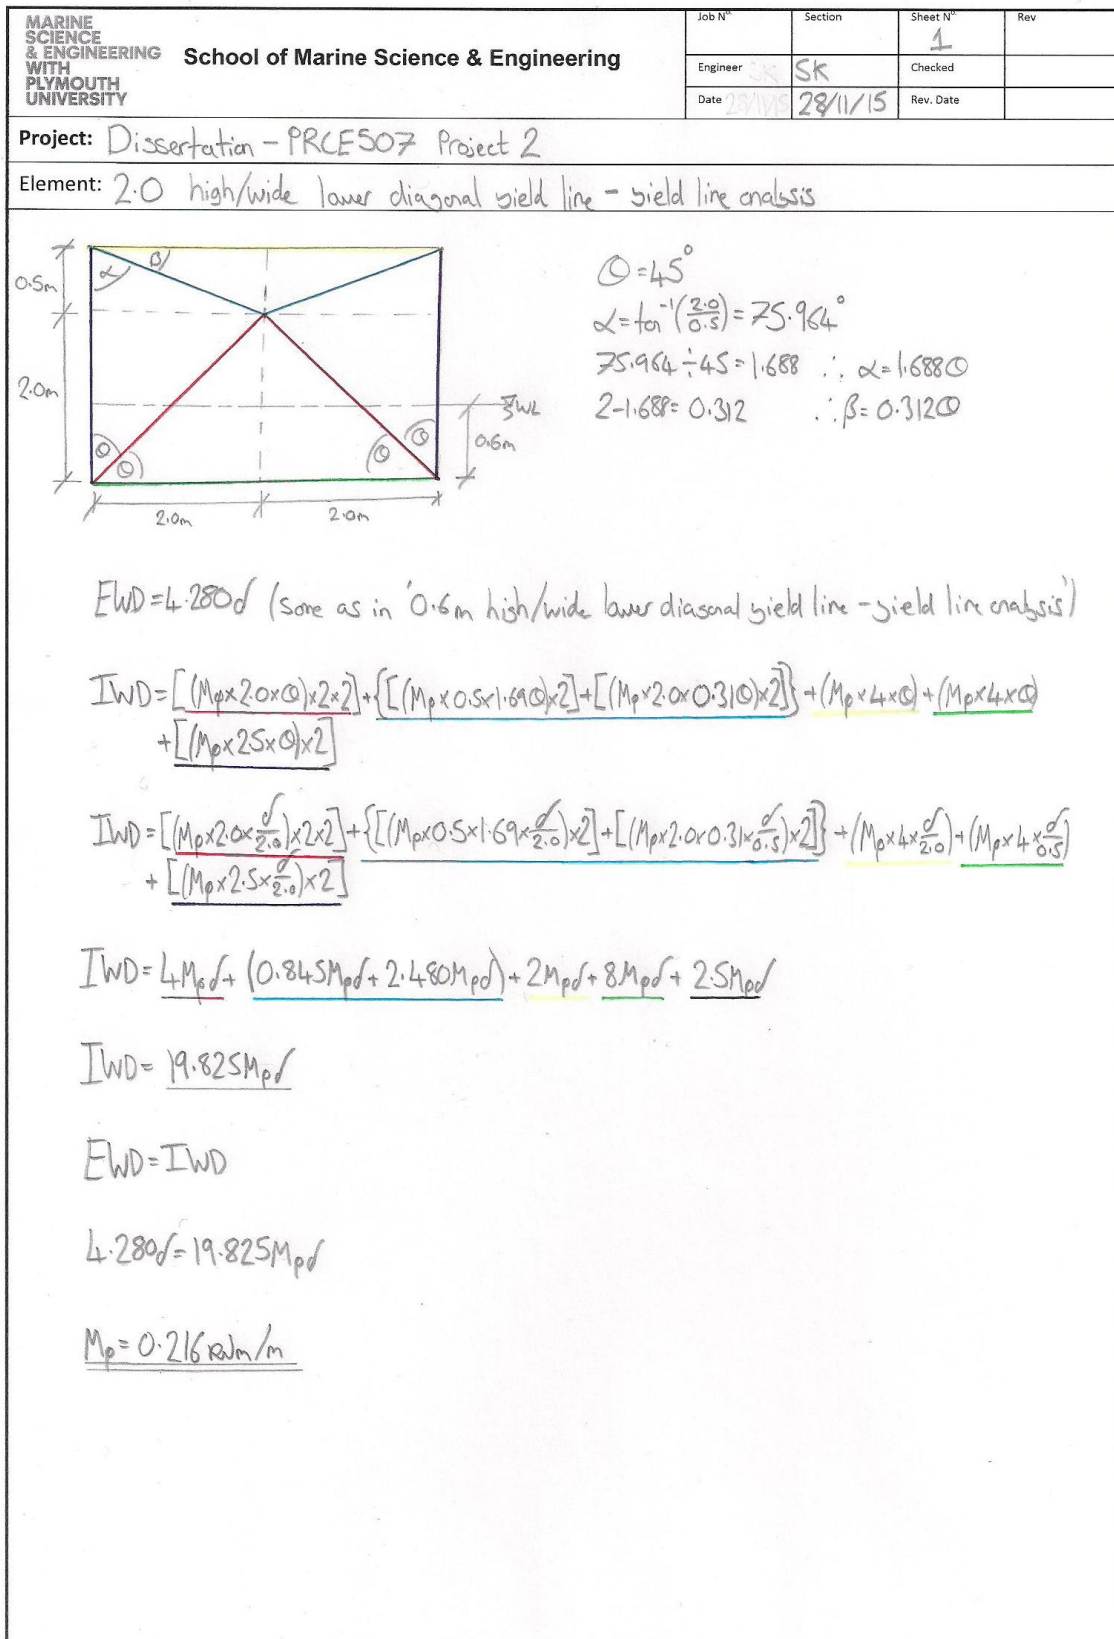 MARINE
SCIENCE
& ENGINEERING
WITH
PLYMOUTH
UNIVERSITY
School of Marine Science & Engineering
Job Nº.
Section
Sheet Nº.
1
Rev
Engineer SK
SK
Checked
Date 28/11/15
28/11/15
Rev. Date
Project: Dissertation - PRCE507 Project 2
Element: 2.0 high/wide lower diagonal yield line - yield line analysis
0.5m
α
β
2.0m
WL
0.6m
θ
θ
θ
θ
2.0m
2.0m
θ=45°
α=tan⁻¹(2.0/0.5)=75.964°
75.964÷45=1.688 ∴ α=1.688θ
2-1.688=0.312 ∴ β=0.312θ
EWD=4.280δ (same as in '0.6m high/wide lower diagonal yield line - yield line analysis')
IWD=[(Mp×2.0×θ)×2×2]+{[(Mp×0.5×1.69θ)×2]+[(Mp×2.0×0.31θ)×2]}+(Mp×4×θ)+(Mp×4×θ)
+[(Mp×2.5×θ)×2]
IWD=[(Mp×2.0×δ/2.0)×2×2]+{[(Mp×0.5×1.69×δ/2.0)×2]+[(Mp×2.0×0.31×δ/0.5)×2]}+(Mp×4×δ/2.0)+(Mp×4×δ/0.5)
+[(Mp×2.5×δ/2.0)×2]
IWD=4Mpδ+(0.845Mpδ+2.480Mpδ)+2Mpδ+8Mpδ+2.5Mpδ
IWD=19.825Mpδ
EWD=IWD
4.280δ=19.825Mpδ
Mp=0.216kNm/m